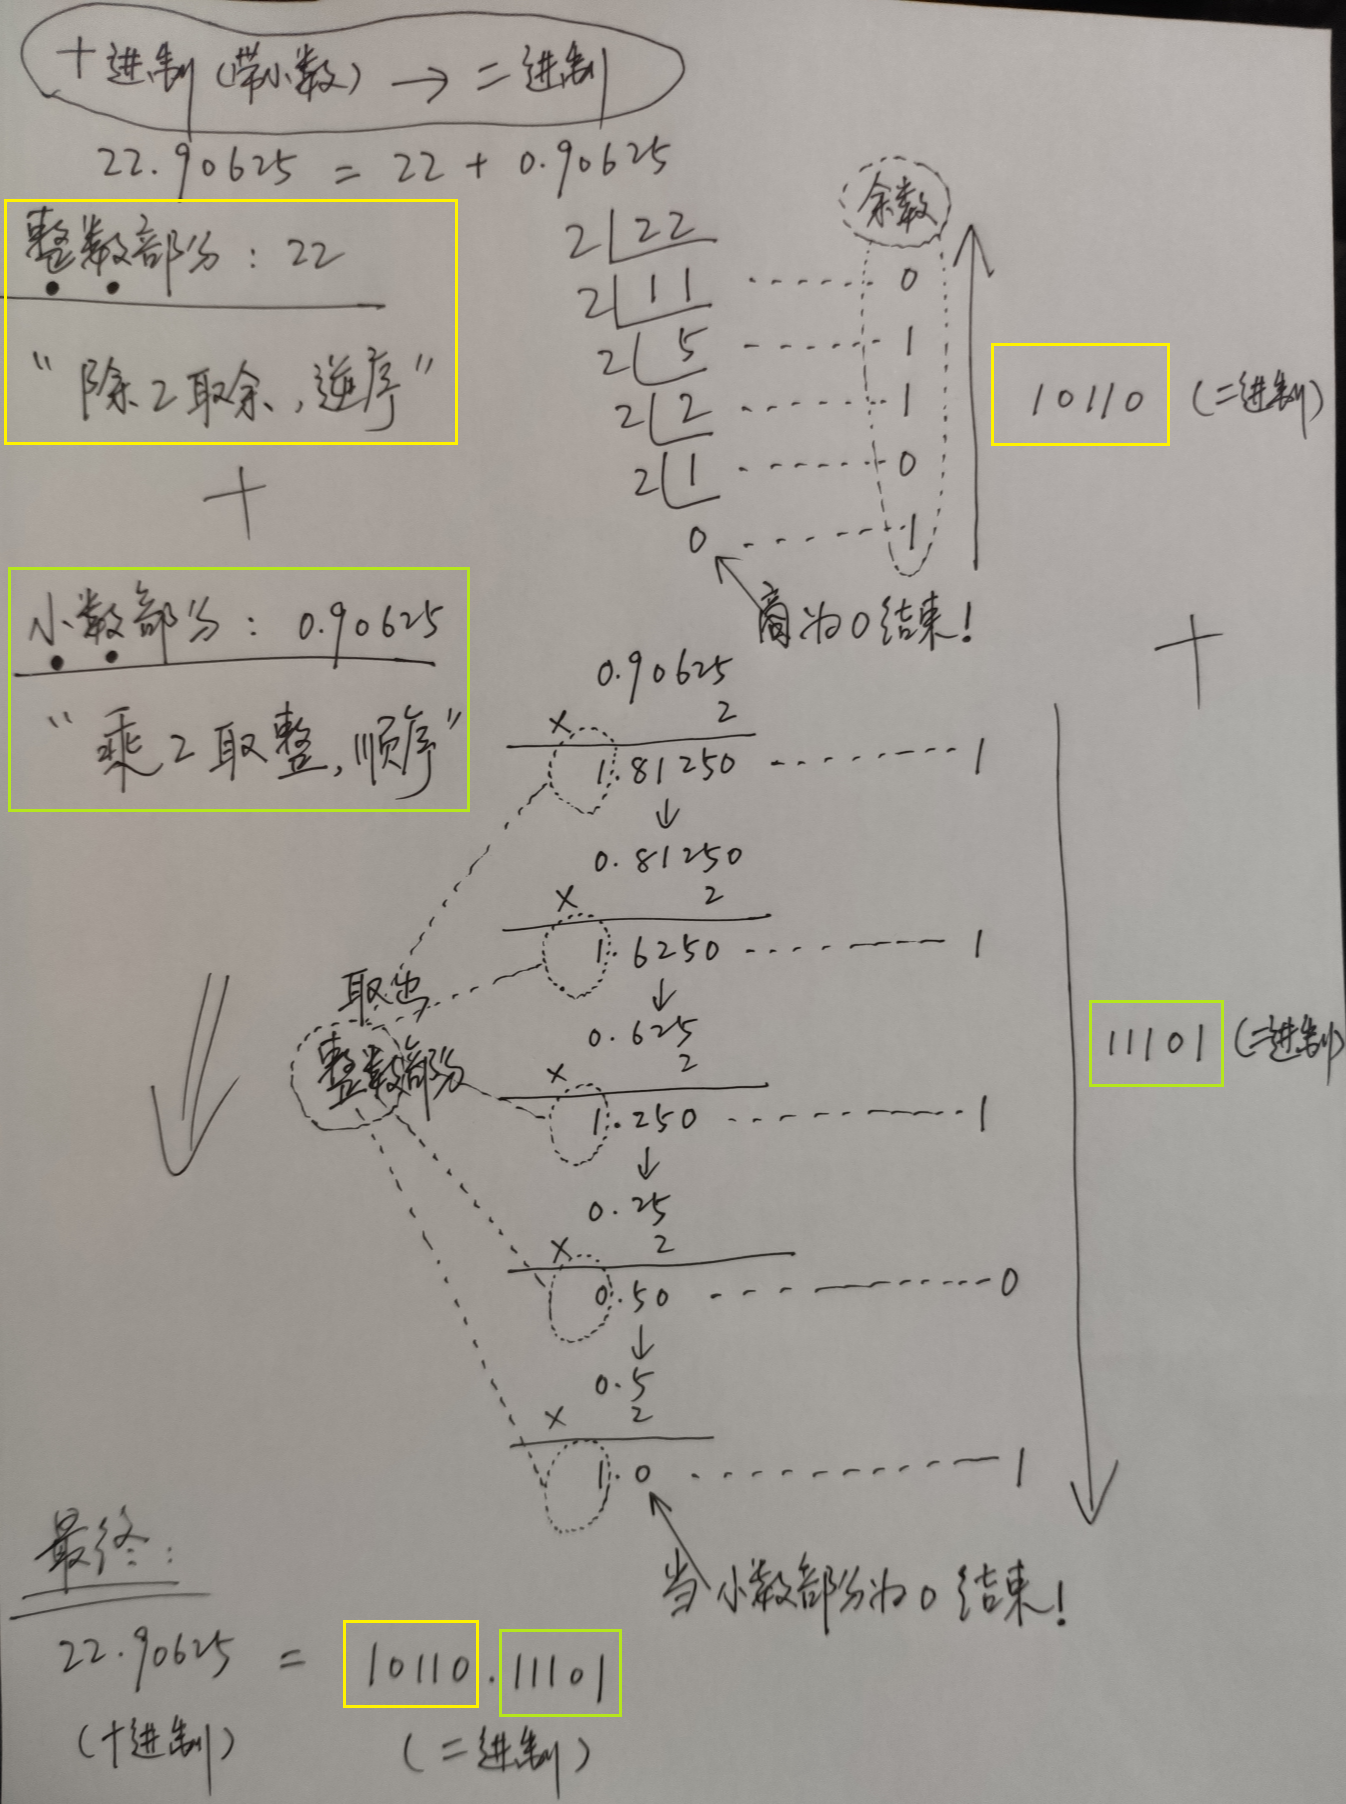 十进制(带小数) → 二进制
22.90625 = 22 + 0.90625
整数部分: 22
“除2取余,逆序”
+
小数部分: 0.90625
“乘2取整,顺序”
余数
2 22
2 11 0
2 5 1
2 2 1
2 1 0
0 1
商为0结束!
10110 (二进制)
+
0.90625
× 2
1.81250 1
↓
0.81250
× 2
1.6250 1
↓
0.625
× 2
1.250 1
↓
0.25
× 2
0.50 0
↓
0.5
× 2
1.0 1
取出
整数部分
11101 (二进制)
当小数部分为0结束!
最终:
22.90625 = 10110.11101
(十进制) (二进制)